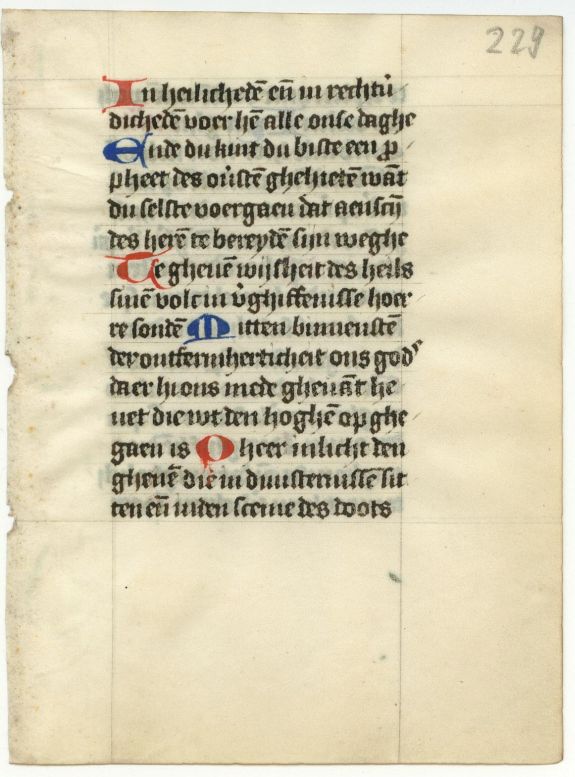 229
In heilichedē eñ in rechtv̄
dichedē voer hē alle onse daghe
Ende du kint du biste een ꝓ
pheet des ov̄stē ghehietē wāt
du selste voergaen dat aenscḣ
des herē te bereydē sijn weghe
Te gheuē wijsheit des heils
sinē volc in v̄ghiffenisse hoer
re sondē Mitten binnenstē
der ontfermherticheit ons god'
daer hi ons mede gheuāt he
uet die wt den hoghē op ghe
gaen is O heer inlicht den
ghenē die in duusternissē sit
ten eñ inden sceme des doots